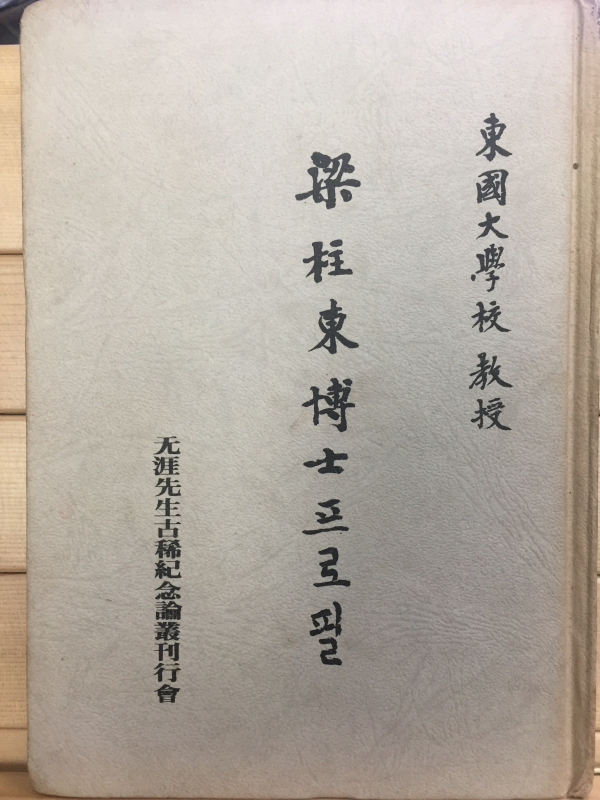 東國大學校 敎授
梁柱東博士프로필
无涯先生古稀紀念論叢刊行會